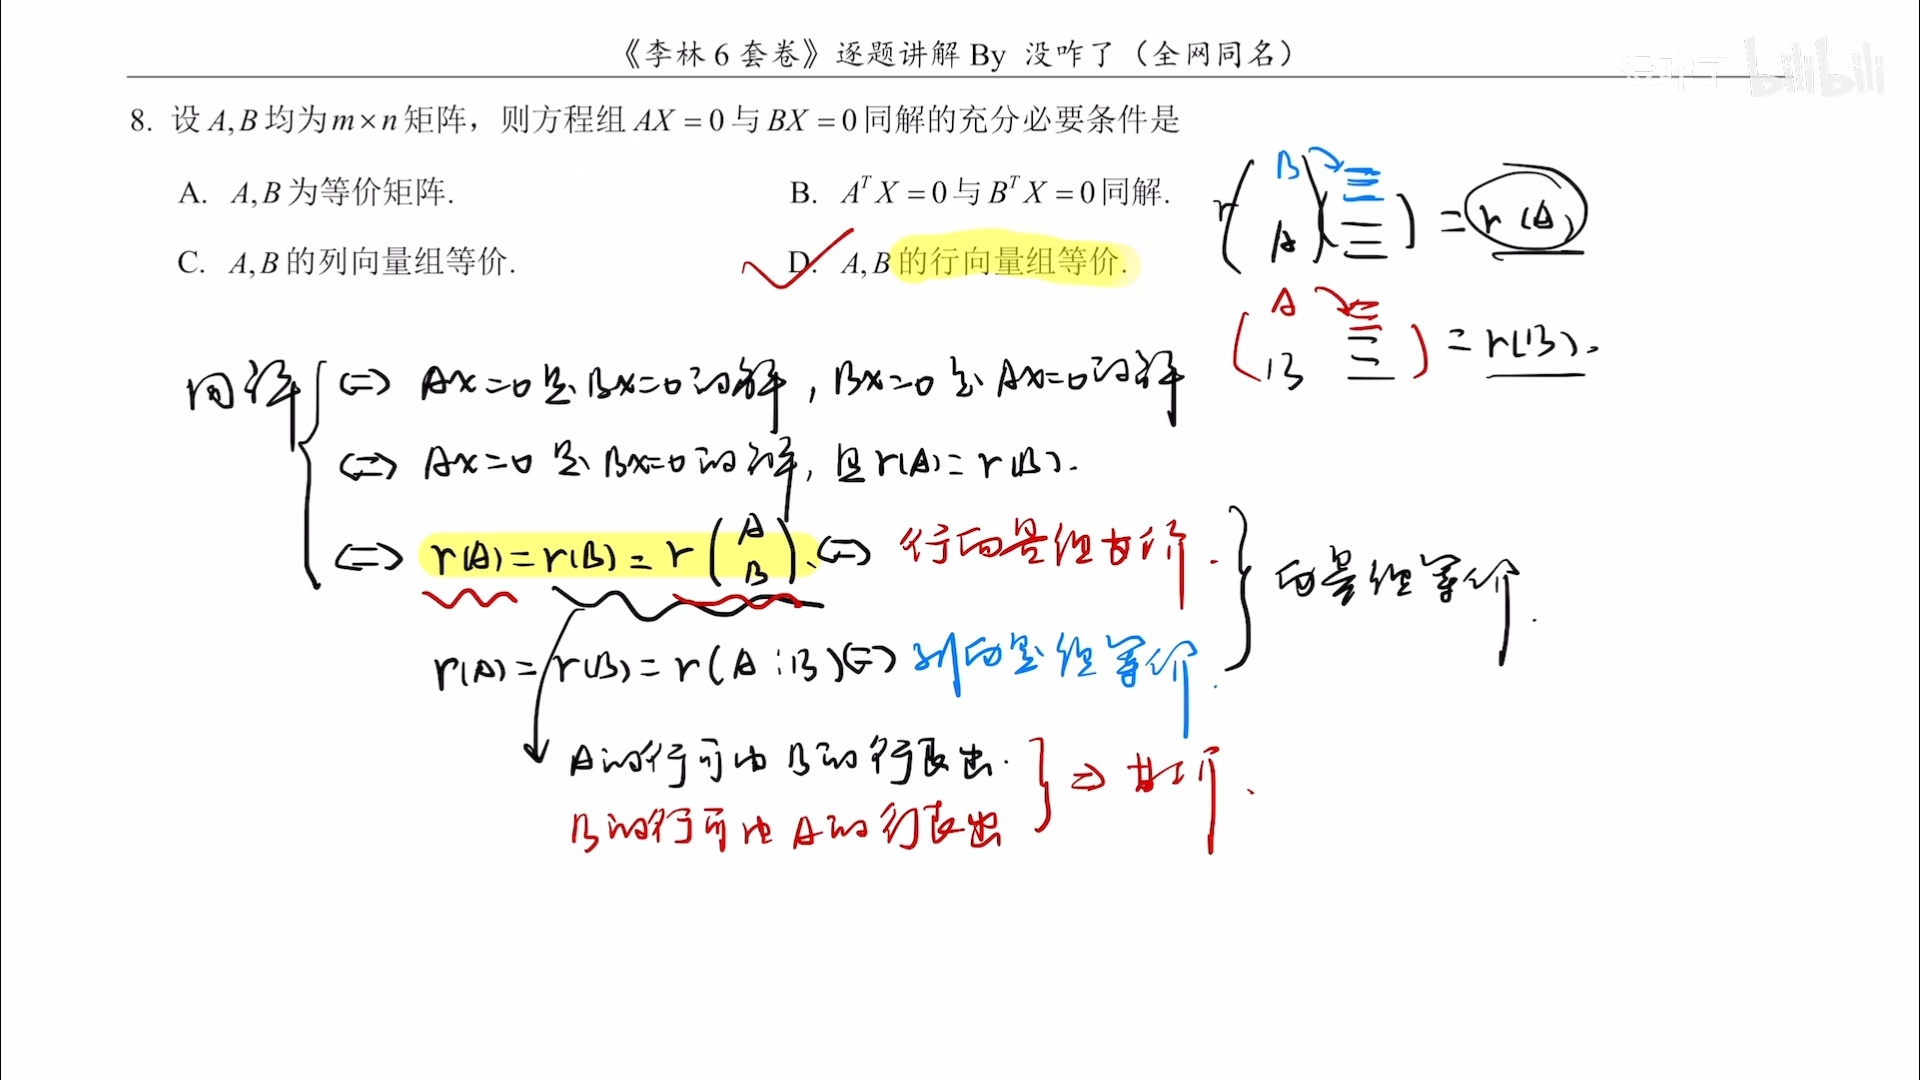 《李林 6 套卷》逐题讲解 By 没咋了（全网同名）
没咋了 bilibili
8. 设 A,B 均为 m×n 矩阵，则方程组 AX = 0 与 BX = 0 同解的充分必要条件是
A. A,B 为等价矩阵.
B. A^T X = 0 与 B^T X = 0 同解.
C. A,B 的列向量组等价.
D. A,B 的行向量组等价.
r(B A) = r(A)
(A B) = r(B).
同解 ⇔ Ax=0 是 Bx=0 的解, Bx=0 是 Ax=0 的解
⇔ Ax=0 是 Bx=0 的解, 且 r(A)=r(B).
⇔ r(A)=r(B)=r(A B). ⇔ 行向量组等价.
向量组等价.
r(A)=r(B)=r(A⋮B) ⇔ 列向量组等价.
A的行可由B的行表出.
B的行可由A的行表出
⇒ 等价.